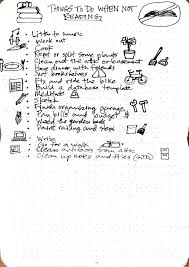 THINGS TO DO WHEN NOT
READING
Listen to music
Work out
Cook
Repot or split some plants
Clean out the attic or basement
Have dinner with friends
Sort bookshelves
Fix and ride the bike
Build a database template
Meditate
Sketch
Finish organizing garage
Pay bills and budget $
Weed the garden beds
Paint railing and steps
Write
Go for a walk
Clean out from attic
Clean up notes and files (GTD)